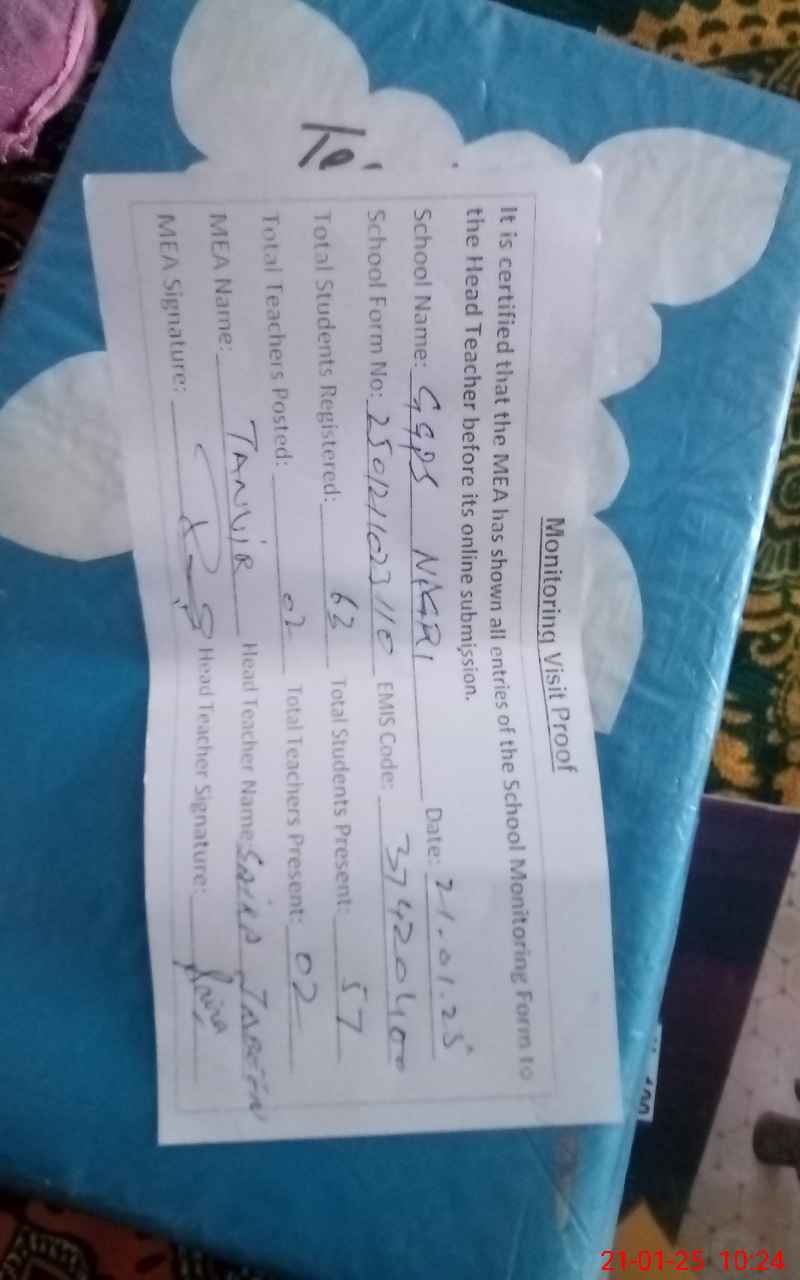 Monitoring Visit Proof
It is certified that the MEA has shown all entries of the School Monitoring Form to
the Head Teacher before its online submission.
School Name: GGPS NAGRI Date: 21.01.25
School Form No: 2501211023110 EMIS Code: 37420400
Total Students Registered: 63 Total Students Present: 57
Total Teachers Posted: 02 Total Teachers Present: 02
MEA Name: TANVIR Head Teacher Name: SAIRA
MEA Signature: Head Teacher Signature: Saira
21-01-25 10:24